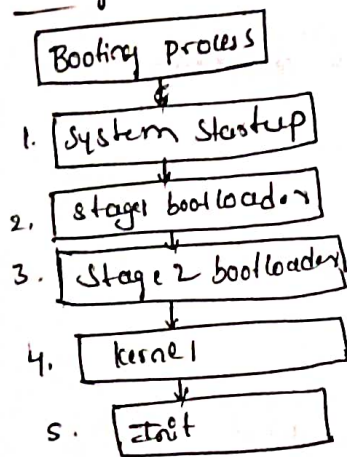 Booting process
1. System Startup
2. stage1 bootloader
3. Stage 2 bootloader
4. kernel
5. Init